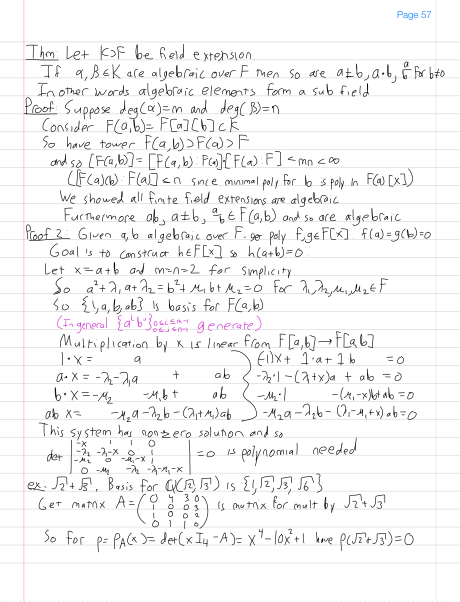 Page 57
Thm: Let K⊃F be field extension
If α, β ∈ K are algebraic over F then so are a±b, a·b, a/b for b≠0
In other words algebraic elements form a sub field
Proof: Suppose deg(α)=m and deg(β)=n
Consider F(a,b)= F[a][b] ⊂ K
So have tower F(a,b)⊃F(a)⊃F
and so [F(a,b)]=[F(a,b):F(a)][F(a):F] ≤ mn < ∞
([F(a)(b):F(a)] ≤ n since minimal poly for b is poly in F(a)[x])
We showed all finite field extensions are algebraic
Furthermore ab, a±b, a/b ∈ F(a,b) and so are algebraic
Proof 2: Given a,b algebraic over F. get poly f,g∈F[x]. f(a)=g(b)=0
Goal is to construct h∈F[x] so h(a+b)=0
Let x=a+b and m=n=2 for simplicity
So a²+λ₁a+λ₂=b²+μ₁b+μ₂=0 for λ₁,λ₂,μ₁,μ₂∈F
So {1,a,b,ab} is basis for F(a,b)
(In general {aⁱbʲ} 0≤i≤n-1 0≤j≤m-1 generate)
Multiplication by x is linear from F[a,b]→F[a,b]
1·x = a (-1)x + 1·a+1·b =0
a·x = -λ₂-λ₁a + ab -λ₂·1-(λ₁+x)a + ab =0
b·x = -μ₂ -μ₁b+ ab -μ₂·1 -(μ₁-x)b+ab=0
ab x= -μ₂a-λ₂b-(λ₁+μ₁)ab -μ₂a-λ₂b-(λ₁-μ₁+x)ab=0
This system has nonzero solution and so
det | -x 1 1 0 | =0 is polynomial needed
-λ₂ -λ₁-x 0 1
-μ₂ 0 -μ₁-x 1
0 -μ₂ -λ₂ -λ₁-μ₁-x
ex: √2+√3. Basis for Q(√2,√3) is {1,√2,√3,√6}
Get matrix A= (0 4 3 0 is matrix for mult by √2+√3
1 0 0 3
1 0 0 2
0 1 1 0)
So for p=P_A(x)=det(xI₄-A)= x⁴-10x²+1 have p(√2+√3)=0